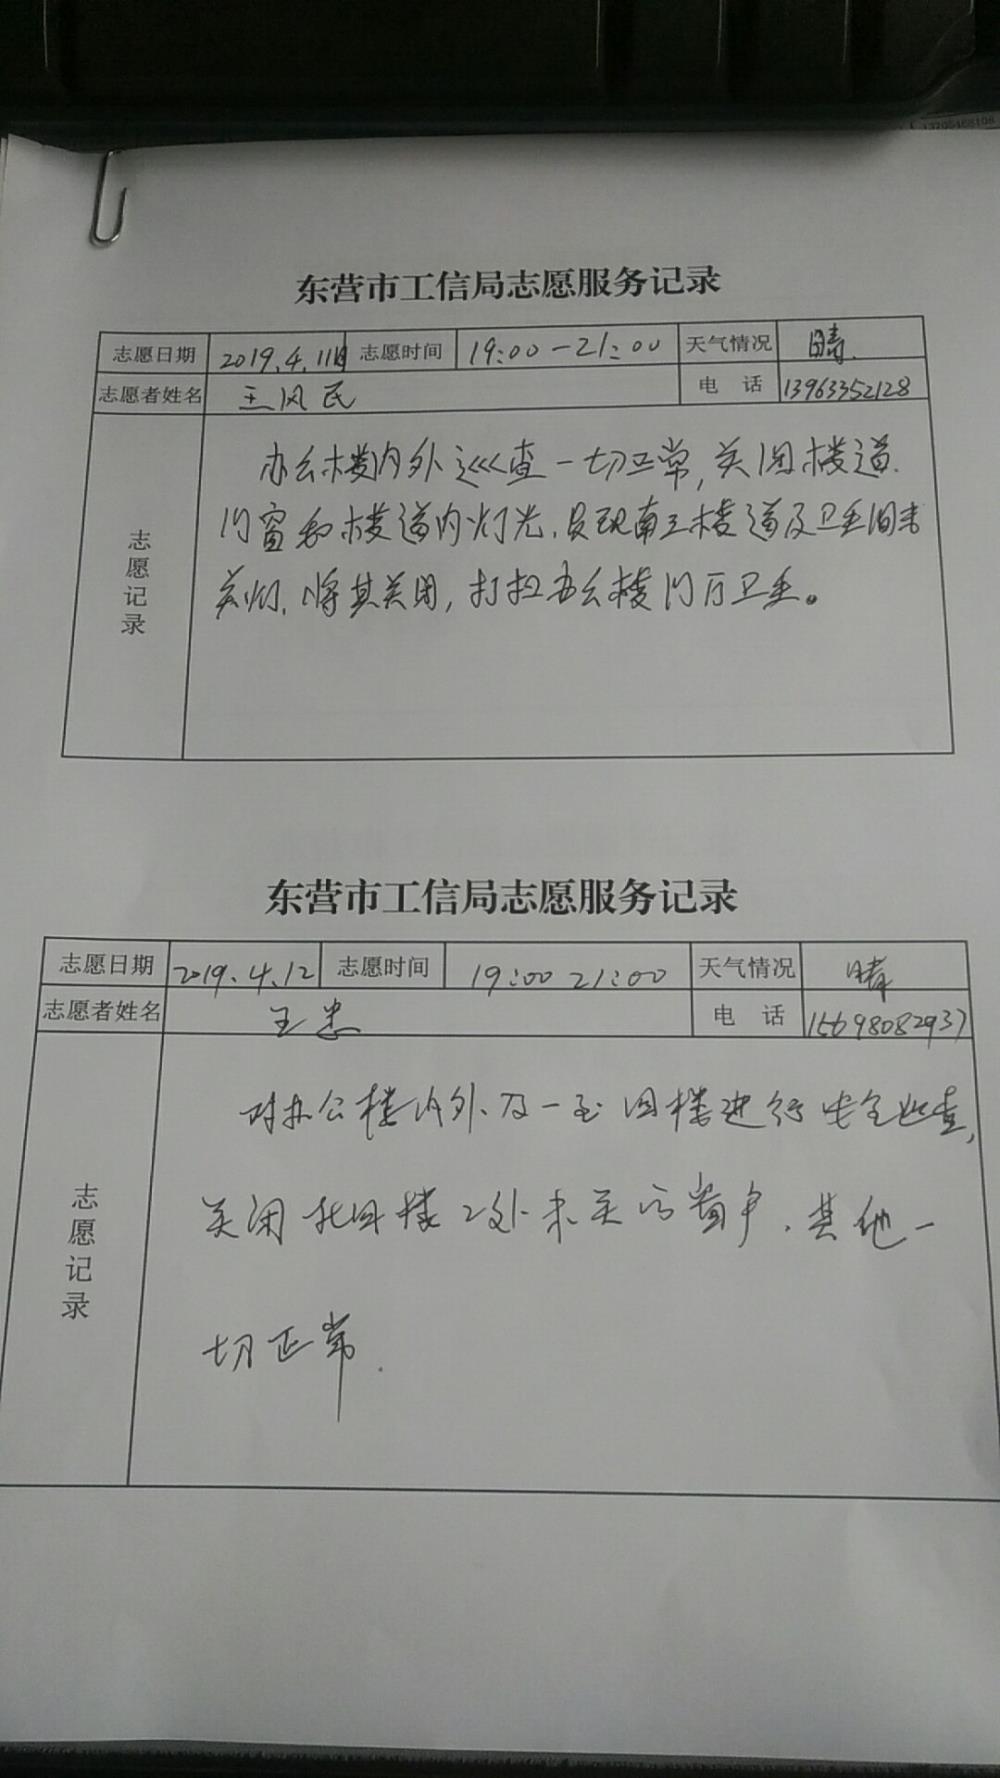 东营市工信局志愿服务记录
志愿日期 2019.4.11日 志愿时间 19:00—21:00 天气情况 晴.
志愿者姓名 王风民 电 话 13963352128
志愿记录
办公楼内外巡查一切正常,关闭楼道
门窗和楼道内灯光.发现南三楼道及卫生间未
关灯,将其关闭,打扫办公楼门厅卫生。
东营市工信局志愿服务记录
志愿日期 2019.4.12 志愿时间 19:00 21:00 天气情况 晴
志愿者姓名 王忠 电 话 15698082937
志愿记录
对办公楼内外及一至四楼进行安全巡查,
关闭北四楼2处未关的窗户.其他一
切正常.